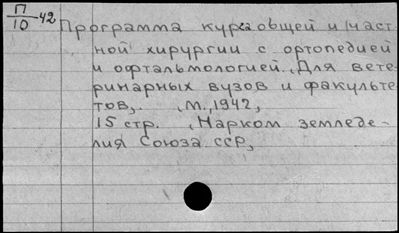 П/10-42
Программа курса общей и част
ной хирургии с ортопедией
и офтальмологией. Для вете-
ринарных вузов и факульте
тов,. М., 1942,
15 стр. , Нарком земледе-
лия Союза ССР,